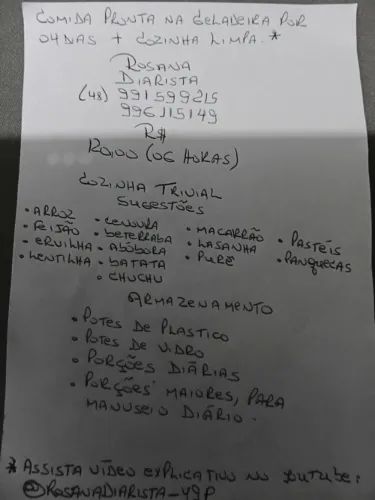 COMIDA PRONTA NA GELADEIRA POR
04 DIAS + COZINHA LIMPA. *
ROSANA
DIARISTA
(48) 991599215
996115149
R$
(06 HORAS)
COZINHA TRIVIAL
SUGESTÕES
• ARROZ • CENOURA • MACARRÃO • PASTÉIS
• FEIJÃO • BETERRABA • LASANHA • PANQUECAS
• ERVILHA • ABÓBORA • PURÊ
• LENTILHA • BATATA
• CHUCHU
ARMAZENAMENTO
• POTES DE PLASTICO
• POTES DE VIDRO
• PORÇÕES DIÁRIAS
• PORÇÕES MAIORES, PARA
MANUSEIO DIÁRIO.
* ASSISTA VÍDEO EXPLICATIVO NO YOUTUBE: